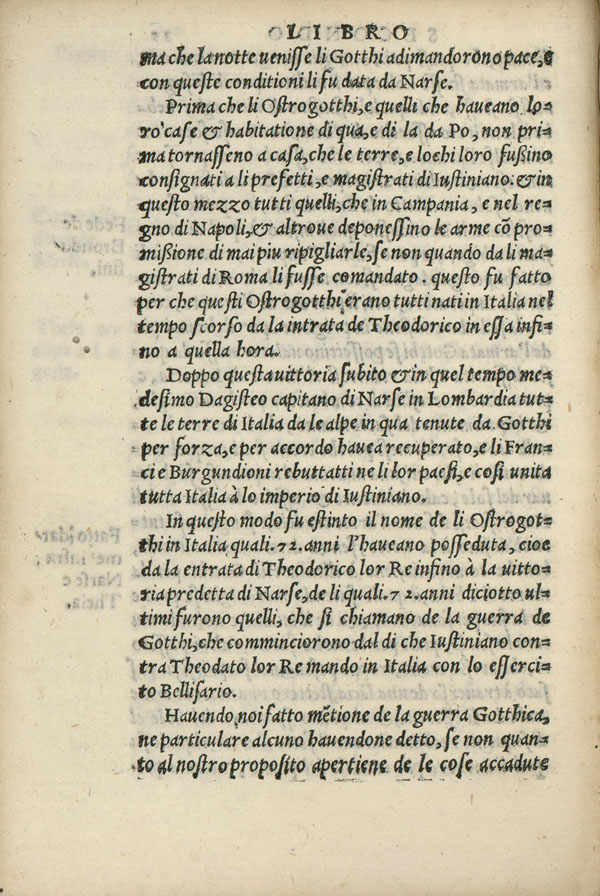 LIBRO
ma che la notte uenisse li Gotthi adimandorono pace, e
con queste conditioni li fu data da Narse.
Prima che li Ostrogotthi, e quelli che haueano lo-
ro case & habitatione di qua, e di la da Po, non pri-
ma tornasseno a casa, che le terre, e lochi loro fußino
consignati a li prefetti, e magistrati di Iustiniano. & in
questo mezzo tutti quelli, che in Campania, e nel re-
gno di Napoli, & altroue deponessino le arme cō pro-
mißione di mai piu ripigliarle, se non quando da li ma-
gistrati di Roma li fusse comandato. questo fu fatto
per che questi Ostrogotthi erano tutti nati in Italia nel
tempo scorso da la intrata de Theodorico in essa infi-
no a quella hora.
Doppo questa uittoria subito & in quel tempo me-
desimo Dagisteo capitano di Narse in Lombardia tut-
te le terre di Italia da le alpe in qua tenute da Gotthi
per forza, e per accordo hauea recuperato, e li Fran-
ci e Burgundioni rebuttatti ne li lor paesi, e così unita
tutta Italia à lo imperio di Iustiniano.
In questo modo fu estinto il nome de li Ostrogot-
thi in Italia quali .72. anni l'haueano posseduta, cioe
da la entrata di Theodorico lor Re infino à la uitto-
ria predetta di Narse, de li quali .72. anni diciotto ul-
timi furono quelli, che si chiamano de la guerra de
Gotthi, che comminciorono dal di che Iustiniano con-
tra Theodato lor Re mando in Italia con lo esserci-
to Bellisario.
Hauendo noi fatto mētione de la guerra Gotthica,
ne particulare alcuno hauendone detto, se non quan-
to al nostro proposito apertiene de le cose accadute